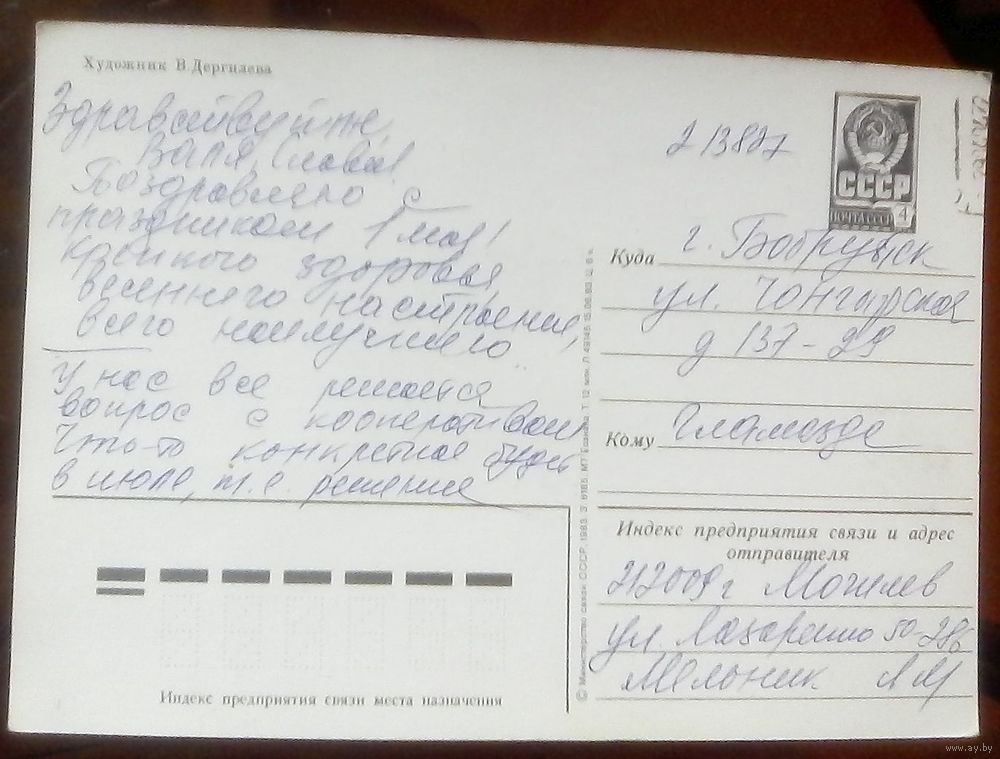 Художник В. Дергилева
Здравствуйте,
Валя, Слава!
Поздравляю с
праздником 1 мая!
крепкого здоровья,
весеннего настроения,
всего наилучшего
У нас все решается
вопрос с кооперативом
Что-то конкретное будет
в июле, т.е. решение
213827
СССР
ПОЧТА СССР 4
Куда г. Бобруйск
ул. Чонгарская
д 137-29
Кому
Индекс предприятия связи и адрес
отправителя
212009 г Могилев
ул. Лазаренко 50-286
Мельник Л М
Индекс предприятия связи места назначения
© Министерство связи СССР. 1983.
www.ay.by